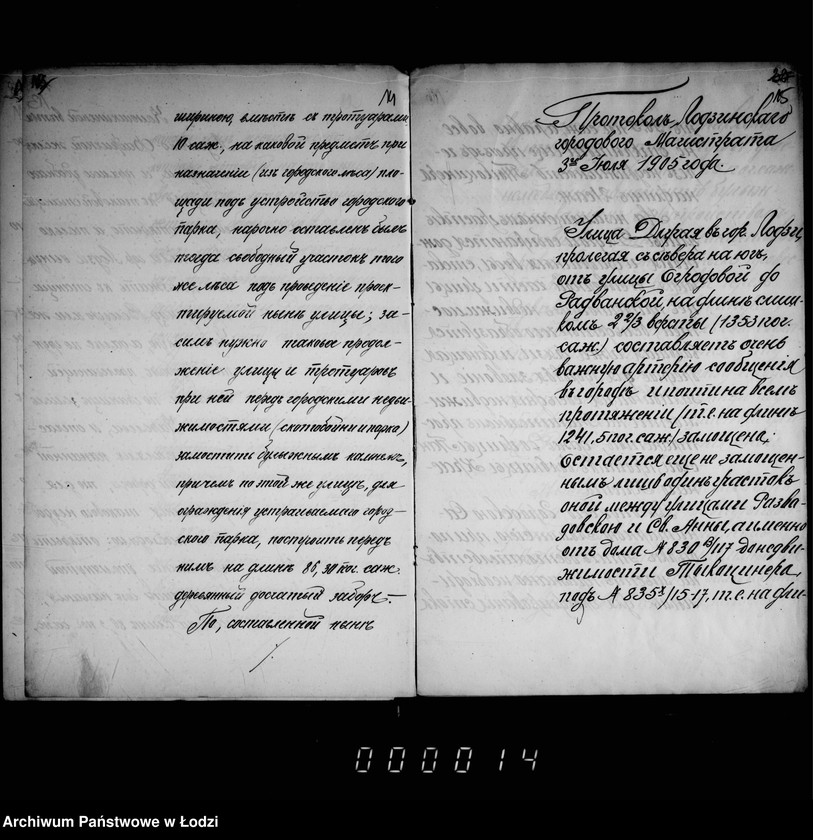 14
шириною, вместѣ съ тротуарами
10 саж., на каковой предметъ при
назначеніи (изъ городского лѣса) пло-
щади подъ устройство городского
парка, нарочно оставленъ былъ
тогда свободный участокъ того
же лѣса подъ проведеніе проек-
тируемой нынѣ улицы; за-
симъ нужно таковое продол-
женіе улицы и тротуаровъ
при ней передъ городскими недви-
жимостями (скотобойни и парка)
замостить булыжнымъ камнемъ,
причемъ по этой же улицѣ, для
огражденія устраиваемаго город-
ского парка, построить передъ
нимъ на длинѣ 86,30 пог. саж.
деревянный досчатый заборъ.
По, составленной нынѣ
115
Протоколъ Лодзинскаго
городового Магистрата
Іюля 1905 года
Улица Дикая въ гор. Лодзи,
пролегая съ сѣвера на югъ,
отъ улицы Огродовой до
Радванской, на длинѣ слиш-
комъ 2 2/3 версты (1353 пог.
саж.) составляетъ очень
важную артерію сообщенія
въ городѣ и почти на всемъ
протяженіи (т. е. на длинѣ
1241,5 пог. саж.) замощена;
остается еще не замощен-
нымъ лишь одинъ участокъ
оной между улицами Разва-
довскою и Св. Анны, а именно
отъ дома № 830 /117 до недви-
жимости Тыкоцинера
подъ № 835 /15-17, т. е. на дли-
000014
Archiwum Państwowe w Łodzi